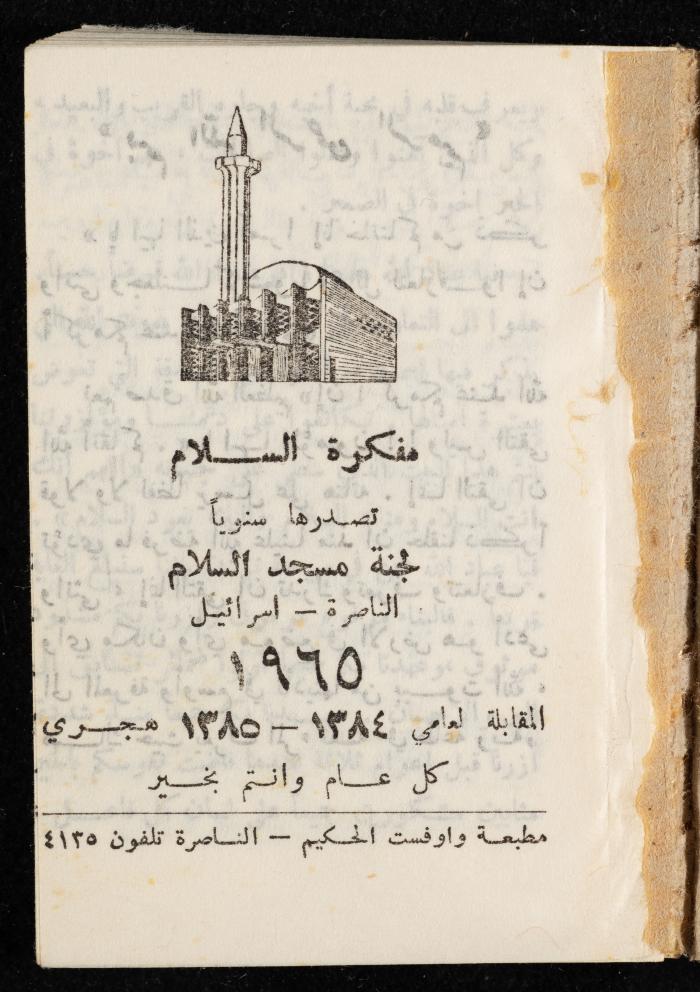 مفكرة السلام
تصدرها سنوياً
لجنة مسجد السلام
الناصرة — اسرائيل
١٩٦٥
المقابلة لعامي ١٣٨٤ — ١٣٨٥ هجري
كل عام وانتم بخير
مطبعة واوفست الحكيم — الناصرة تلفون ٤١٣٥